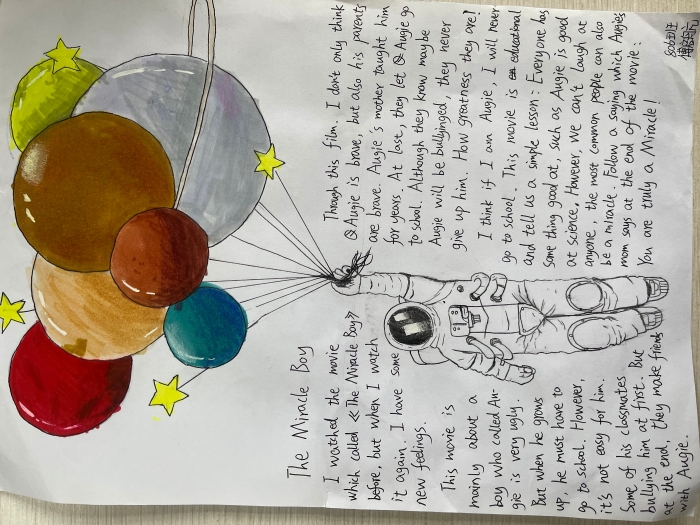 The Miracle Boy
I watched the movie
which called 《The Miracle Boy》
before, but when I watch
it again. I have some
new feelings.
This movie is
mainly about a
boy who called Au-
gie is very ugly.
But when he grows
up, he must have to
go to school. However,
it's not easy for him.
Some of his classmates
bullying him at first. But
at the end, they make friends
with Augie.
Through this film, I don't only think
Augie is brave, but also his parents
are brave. Augie's mother taught him
for years. At last, they let Augie go
to school. Although they know maybe
Augie will be bullyinged, they never
give up him. How greatness they are!
I think if I am Augie, I will never
go to school. This movie is educational
and tell us a simple lesson: Everyone has
some thing good at, such as Augie is good
at science. However, we can't laugh at
anyone, the most common people can also
be a miracle. Follow a saying which Augies
mom says at the end of the movie:
You are truly a Miracle!